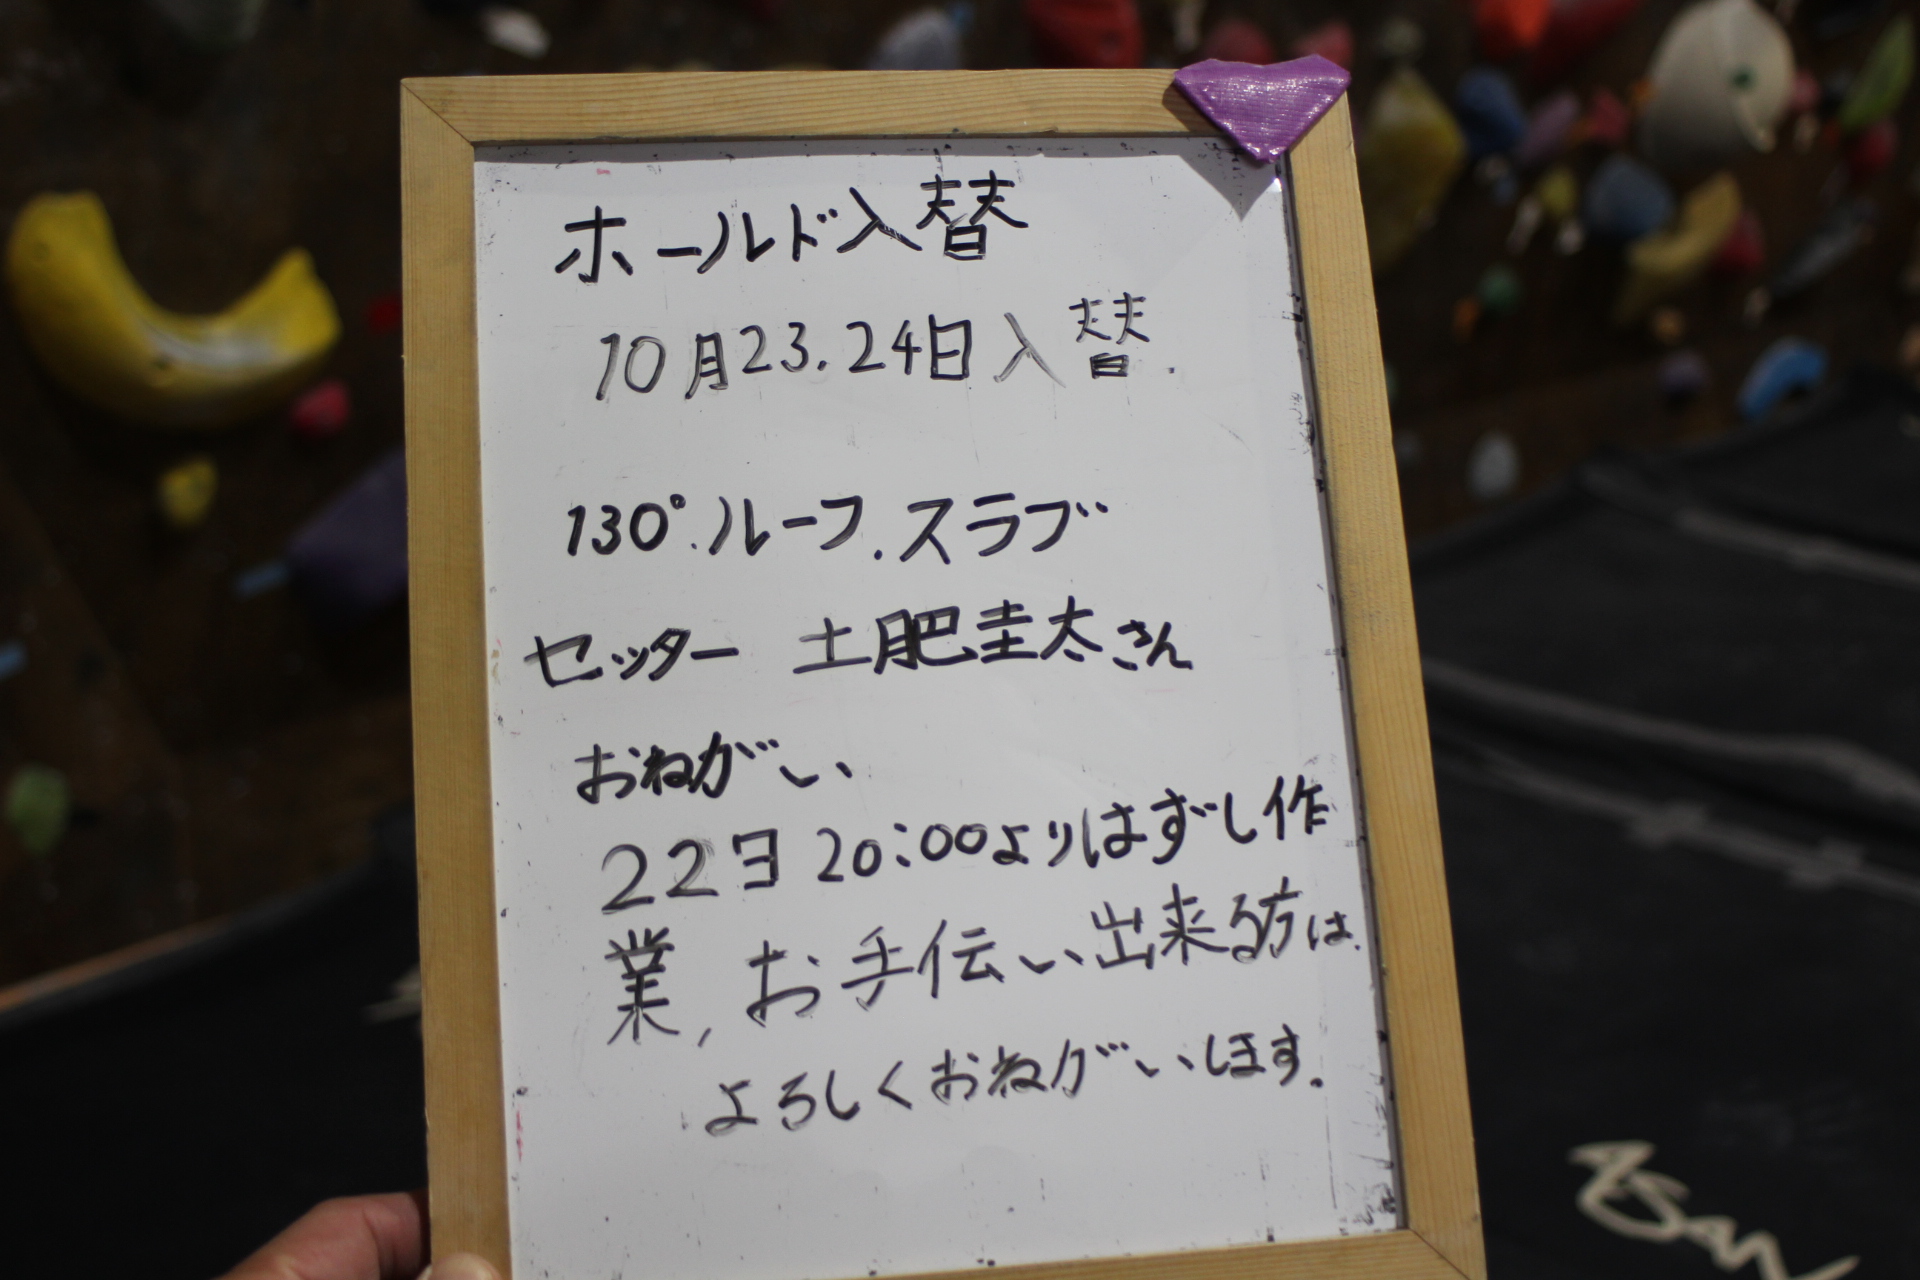 ホールド入替
10月23.24日入替.
130°.ルーフ.スラブ
セッター 土肥圭太さん
おねがい
22日 20:00よりはずし作
業,お手伝い出来る方は.
よろしくおねがいします.